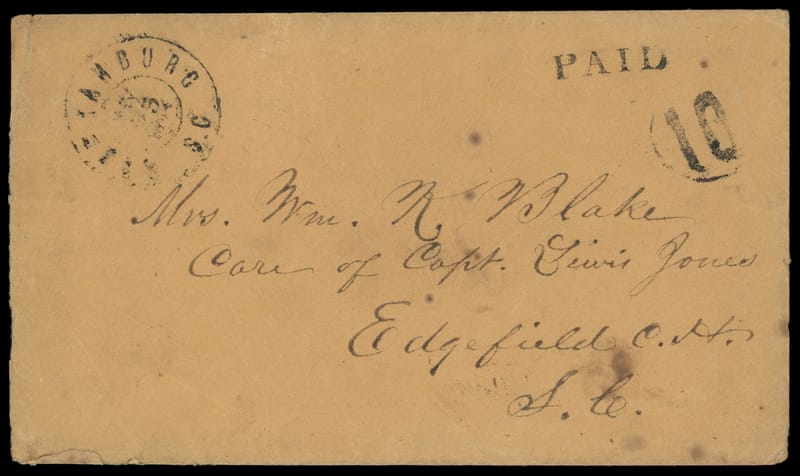 HAMBURG
S.C.
PAID
10
Mrs. Wm. K. Blake
Care of Capt. Lewis Jones
Edgefield C. H.
S. C.